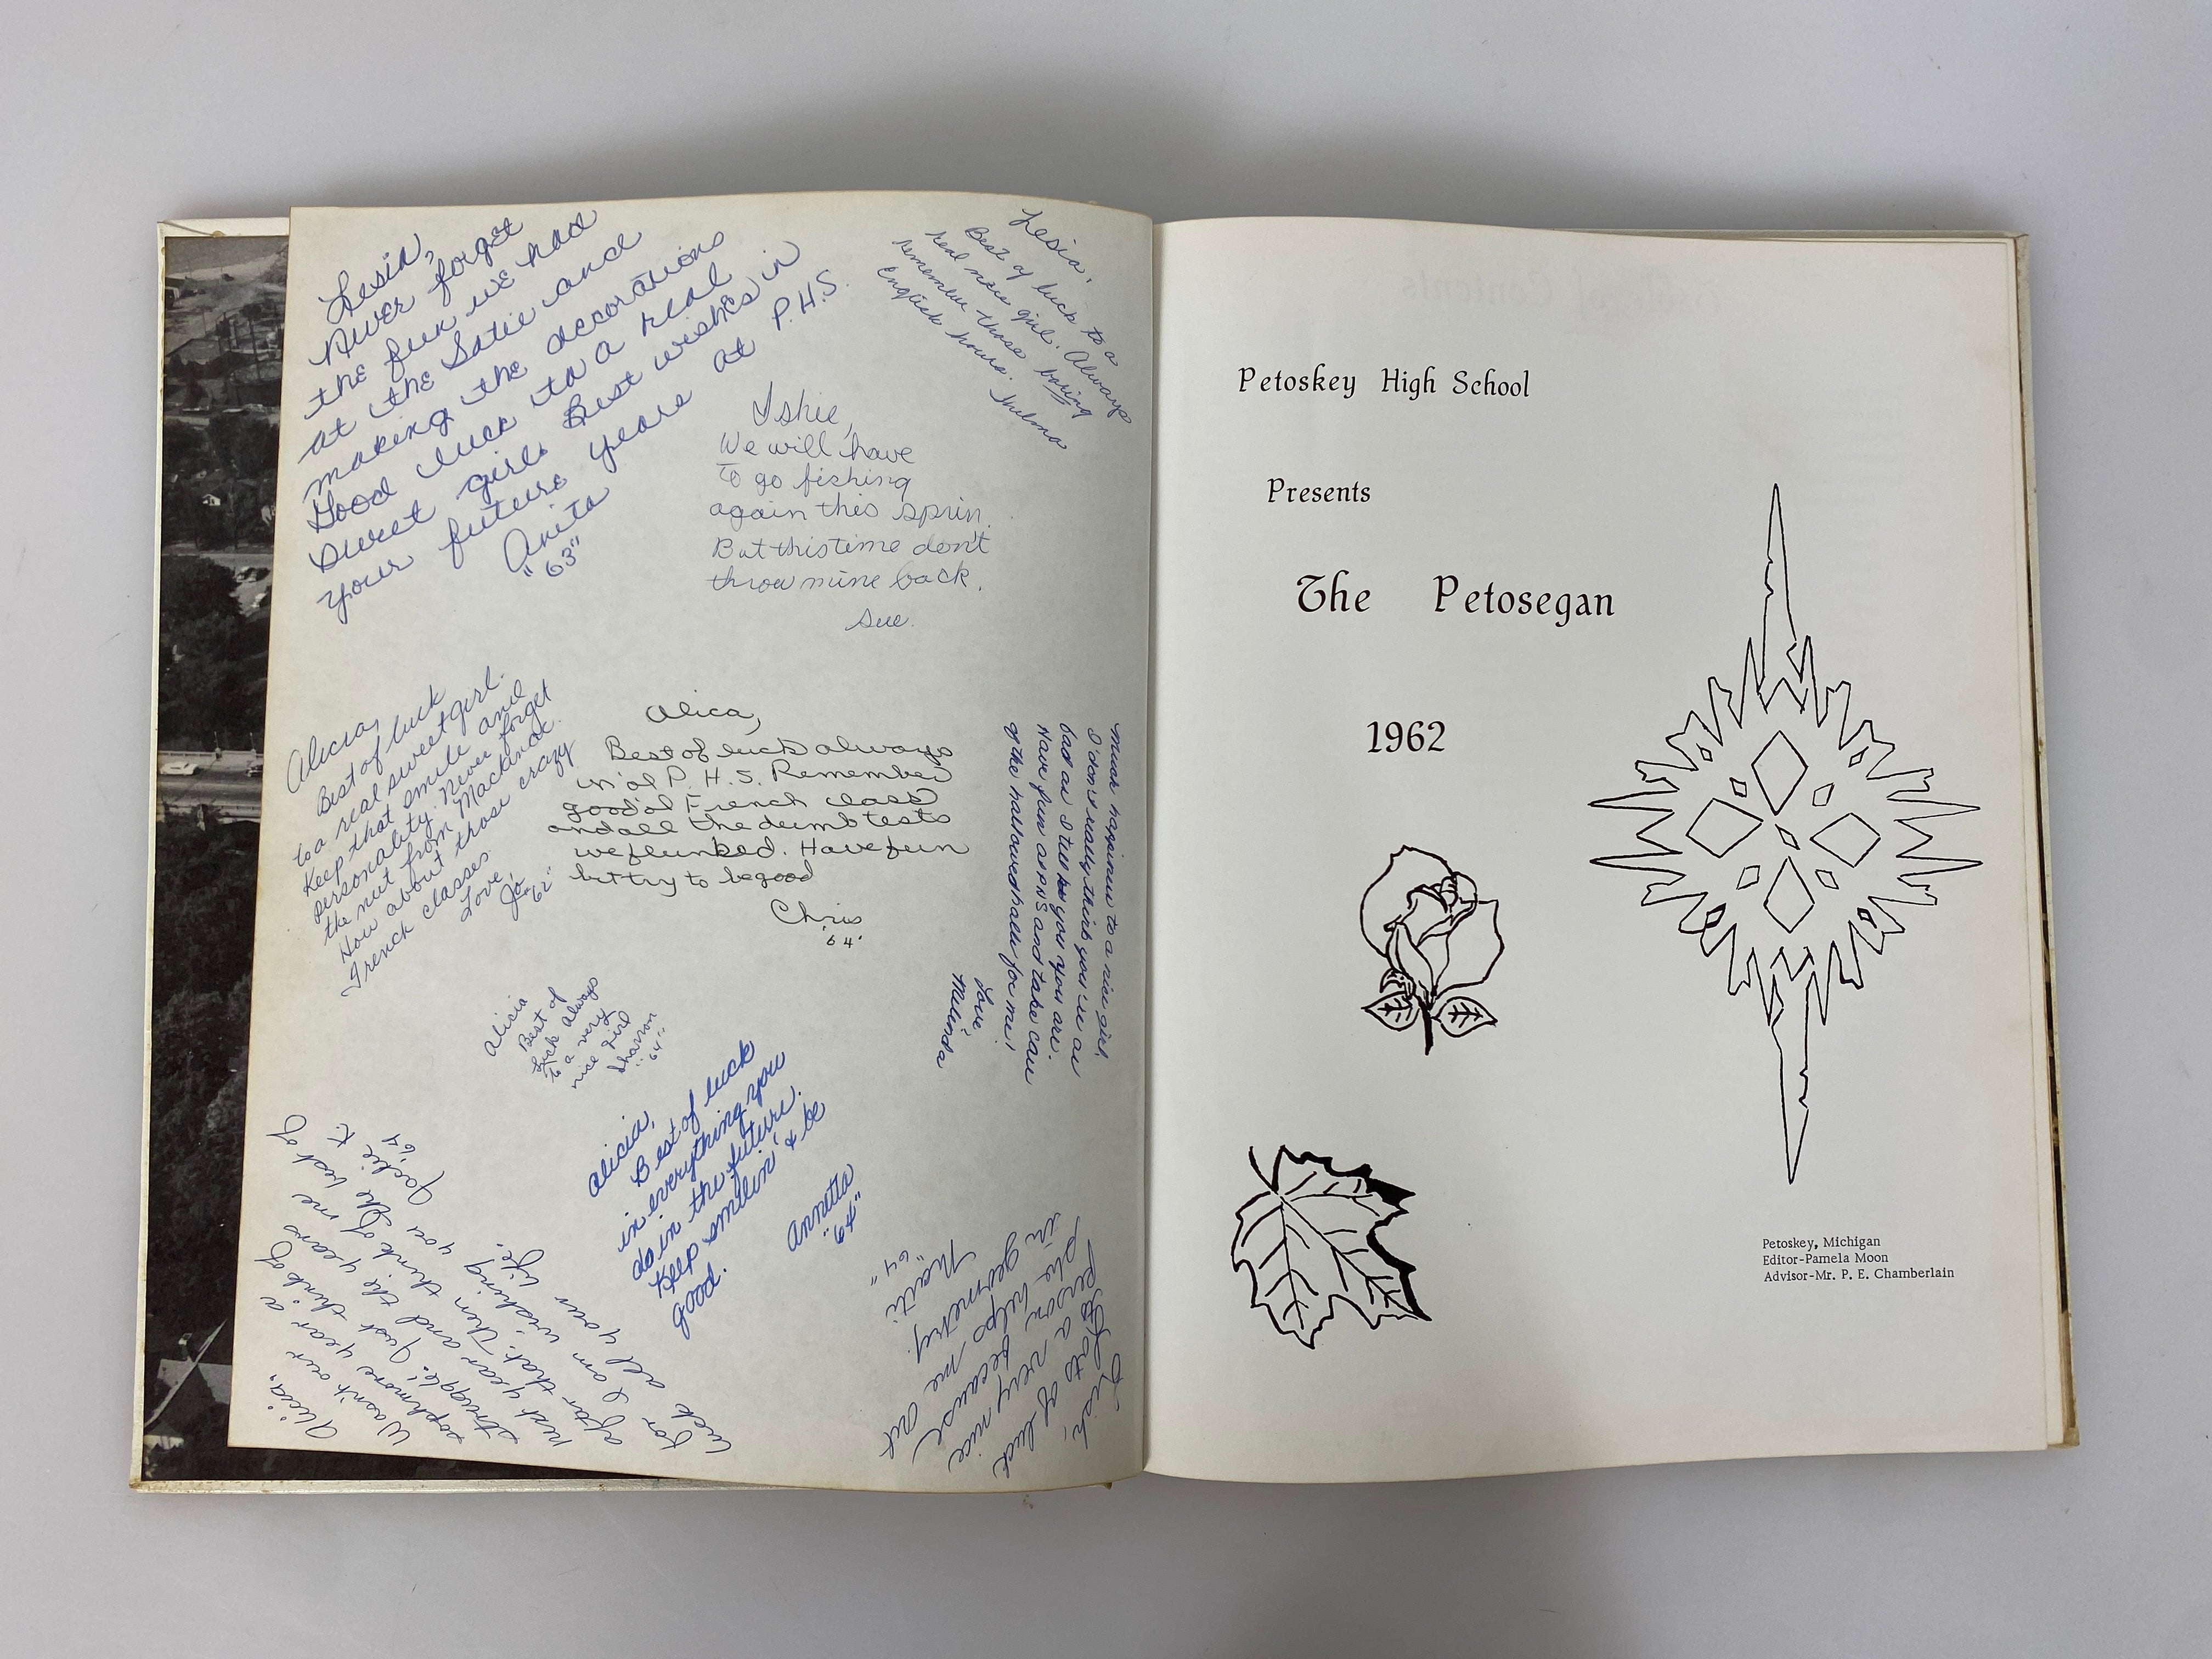 Lesia,
Never forget
the fun we had
at the Satie and
making the decorations
Good luck to a real
sweet girl. Best wishes in
your future years at P.H.S.
Anita
"63"
Lesia,
Best of luck to a
real nice girl. Always
remember those boring
English hours. Thelma
Ishie,
We will have
To go fishing
again this sprin.
But this time don't
throw mine back.
Sue.
Alicia,
Best of luck
to a real sweet girl.
Keep that smile and
personality. Never forget
the nut from Mackinac.
How about those crazy
French classes.
Love,
Jo
"62"
Alica,
Best of luck always
in 'ol P. H. S. Remember
good 'ol French class
and all the dumb tests
we flunked. Have fun
but try to be good
Chris
'64'
Much happiness to a nice girl.
I don't really think you're as
bad as I tell you you are.
Have fun at PHS and take care
of the hallowed halls for me!
Love,
Melinda
Alicia
Best of
luck always
to a very
nice girl
Sharron
"64"
Alicia,
Best of luck
in everything you
do in the future.
Keep smilin' & be
good.
Annetta
"64"
Alicia,
Wasn't our
sophmore year a
struggle! Just think of
next year and the years
after that. Then think of me
for I am wishing you the best of
luck all your life.
Jackie K.
'64
Lish,
Lots of luck
to a very nice
person because
she helps me out
in geometry.
"64"
Petoskey High School
Presents
The Petosegan
1962
Petoskey, Michigan
Editor-Pamela Moon
Advisor-Mr. P. E. Chamberlain